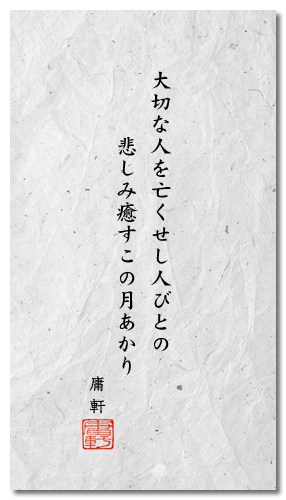 大切な人を亡くせし人びとの
悲しみ癒すこの月あかり
庸軒